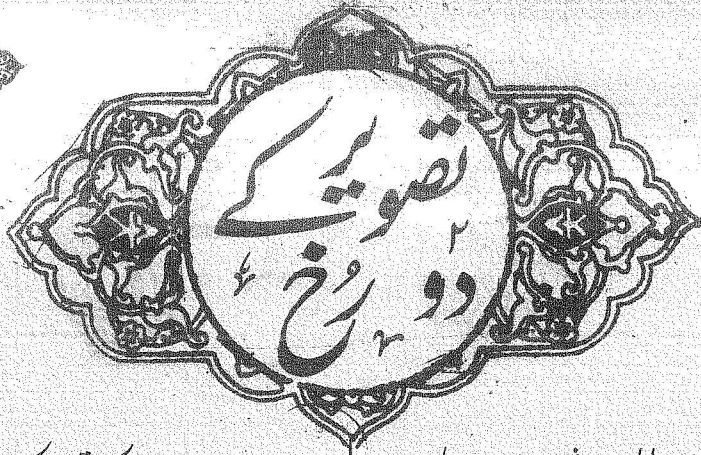 تصویر کے
دو رُخ